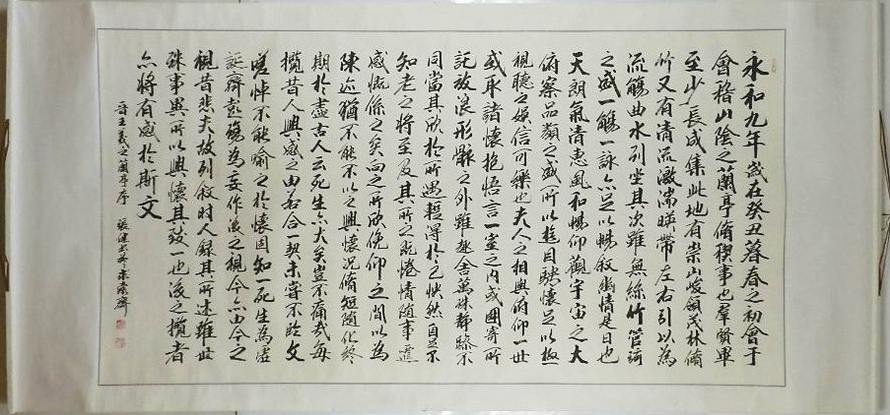 永和九年歲在癸丑暮春之初會于
會稽山陰之蘭亭脩稧事也群賢畢
至少長咸集此地有崇山峻領茂林脩
竹又有清流激湍暎帶左右引以為
流觴曲水列坐其次雖無絲竹管弦
之盛一觴一詠亦足以暢敘幽情是日也
天朗氣清惠風和暢仰觀宇宙之大
俯察品類之盛所以遊目騁懷足以極
視聽之娛信可樂也夫人之相與俯仰一世
或取諸懷抱悟言一室之內或因寄所
託放浪形骸之外雖趣舍萬殊靜躁不
同當其欣於所遇暫得於己怏然自足不
知老之將至及其所之既惓情隨事遷
感慨係之矣向之所欣俛仰之間以為
陳迹猶不能不以之興懷況脩短隨化終
期於盡古人云死生亦大矣豈不痛哉每
攬昔人興感之由若合一契未嘗不臨文
嗟悼不能喻之於懷固知一死生為虛
誕齊彭殤為妄作後之視今亦由今之
視昔悲夫故列敘時人錄其所述雖世
殊事異所以興懷其致一也後之攬者
亦將有感於斯文
晉王羲之蘭亭序